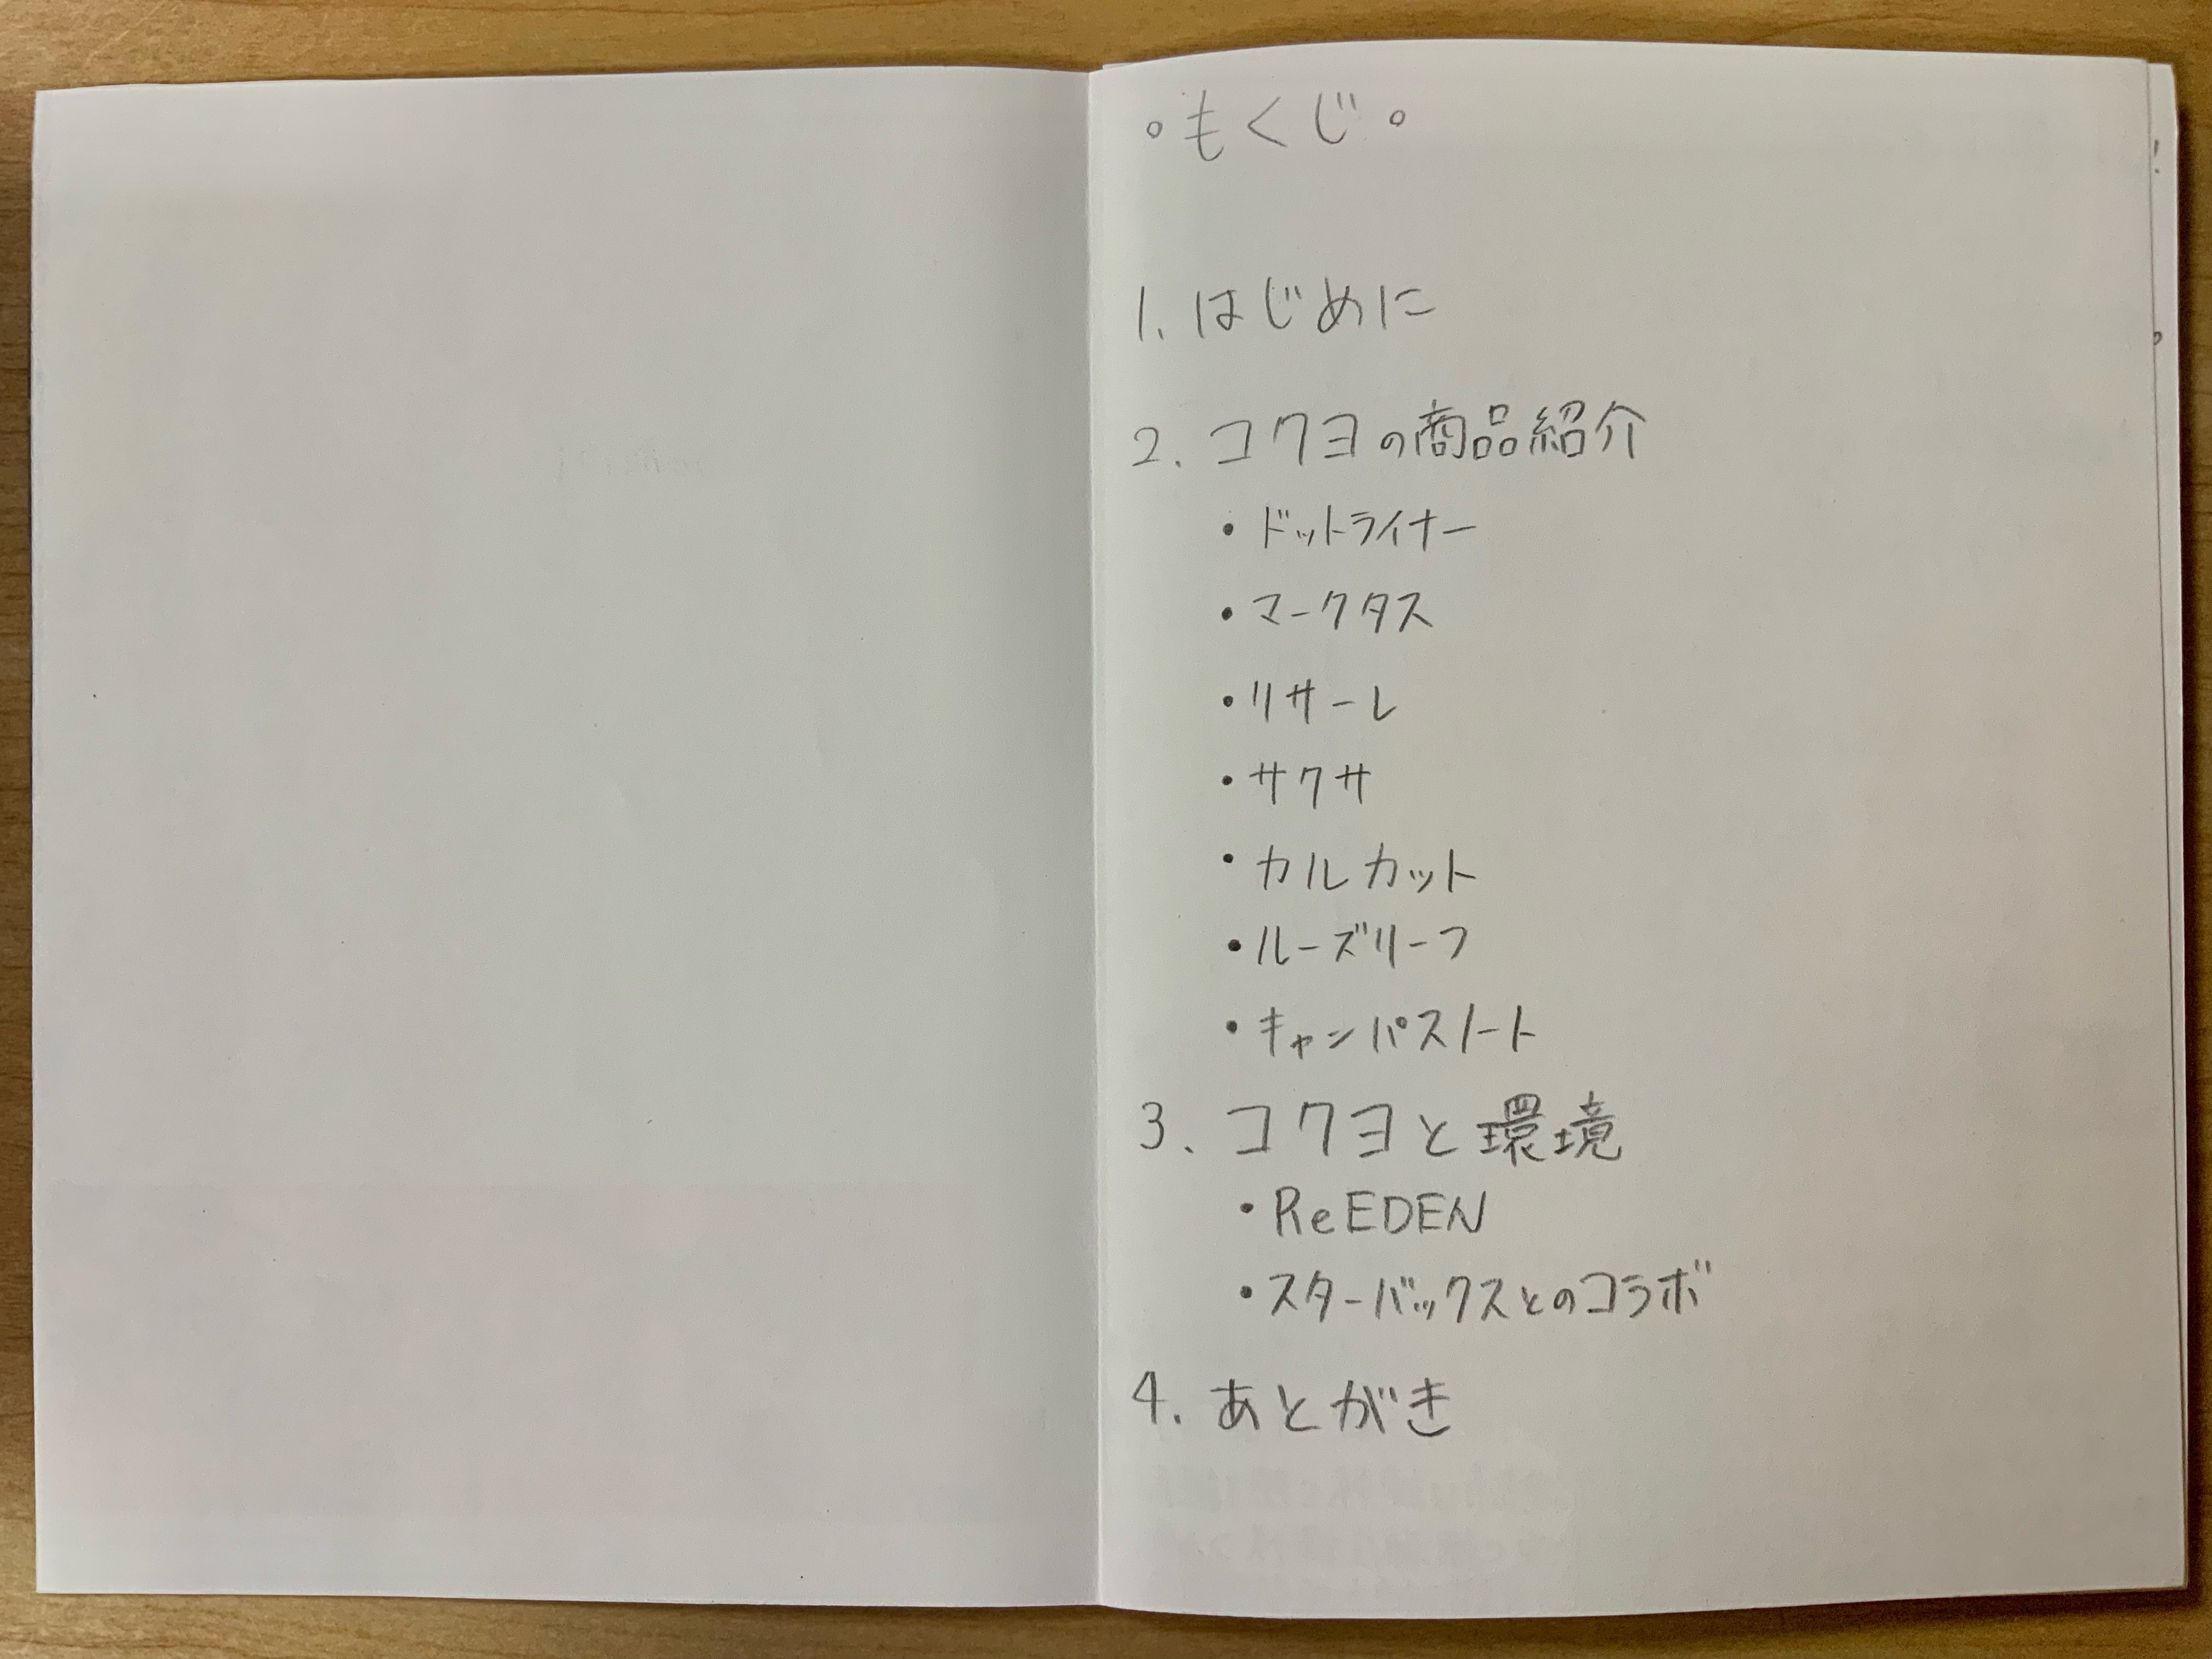 。もくじ。
1. はじめに
2. コクヨの商品紹介
・ドットライナー
・マークタス
・リサーレ
・サクサ
・カルカット
・ルーズリーフ
・キャンパスノート
3. コクヨと環境
・ReEDEN
・スターバックスとのコラボ
4. あとがき